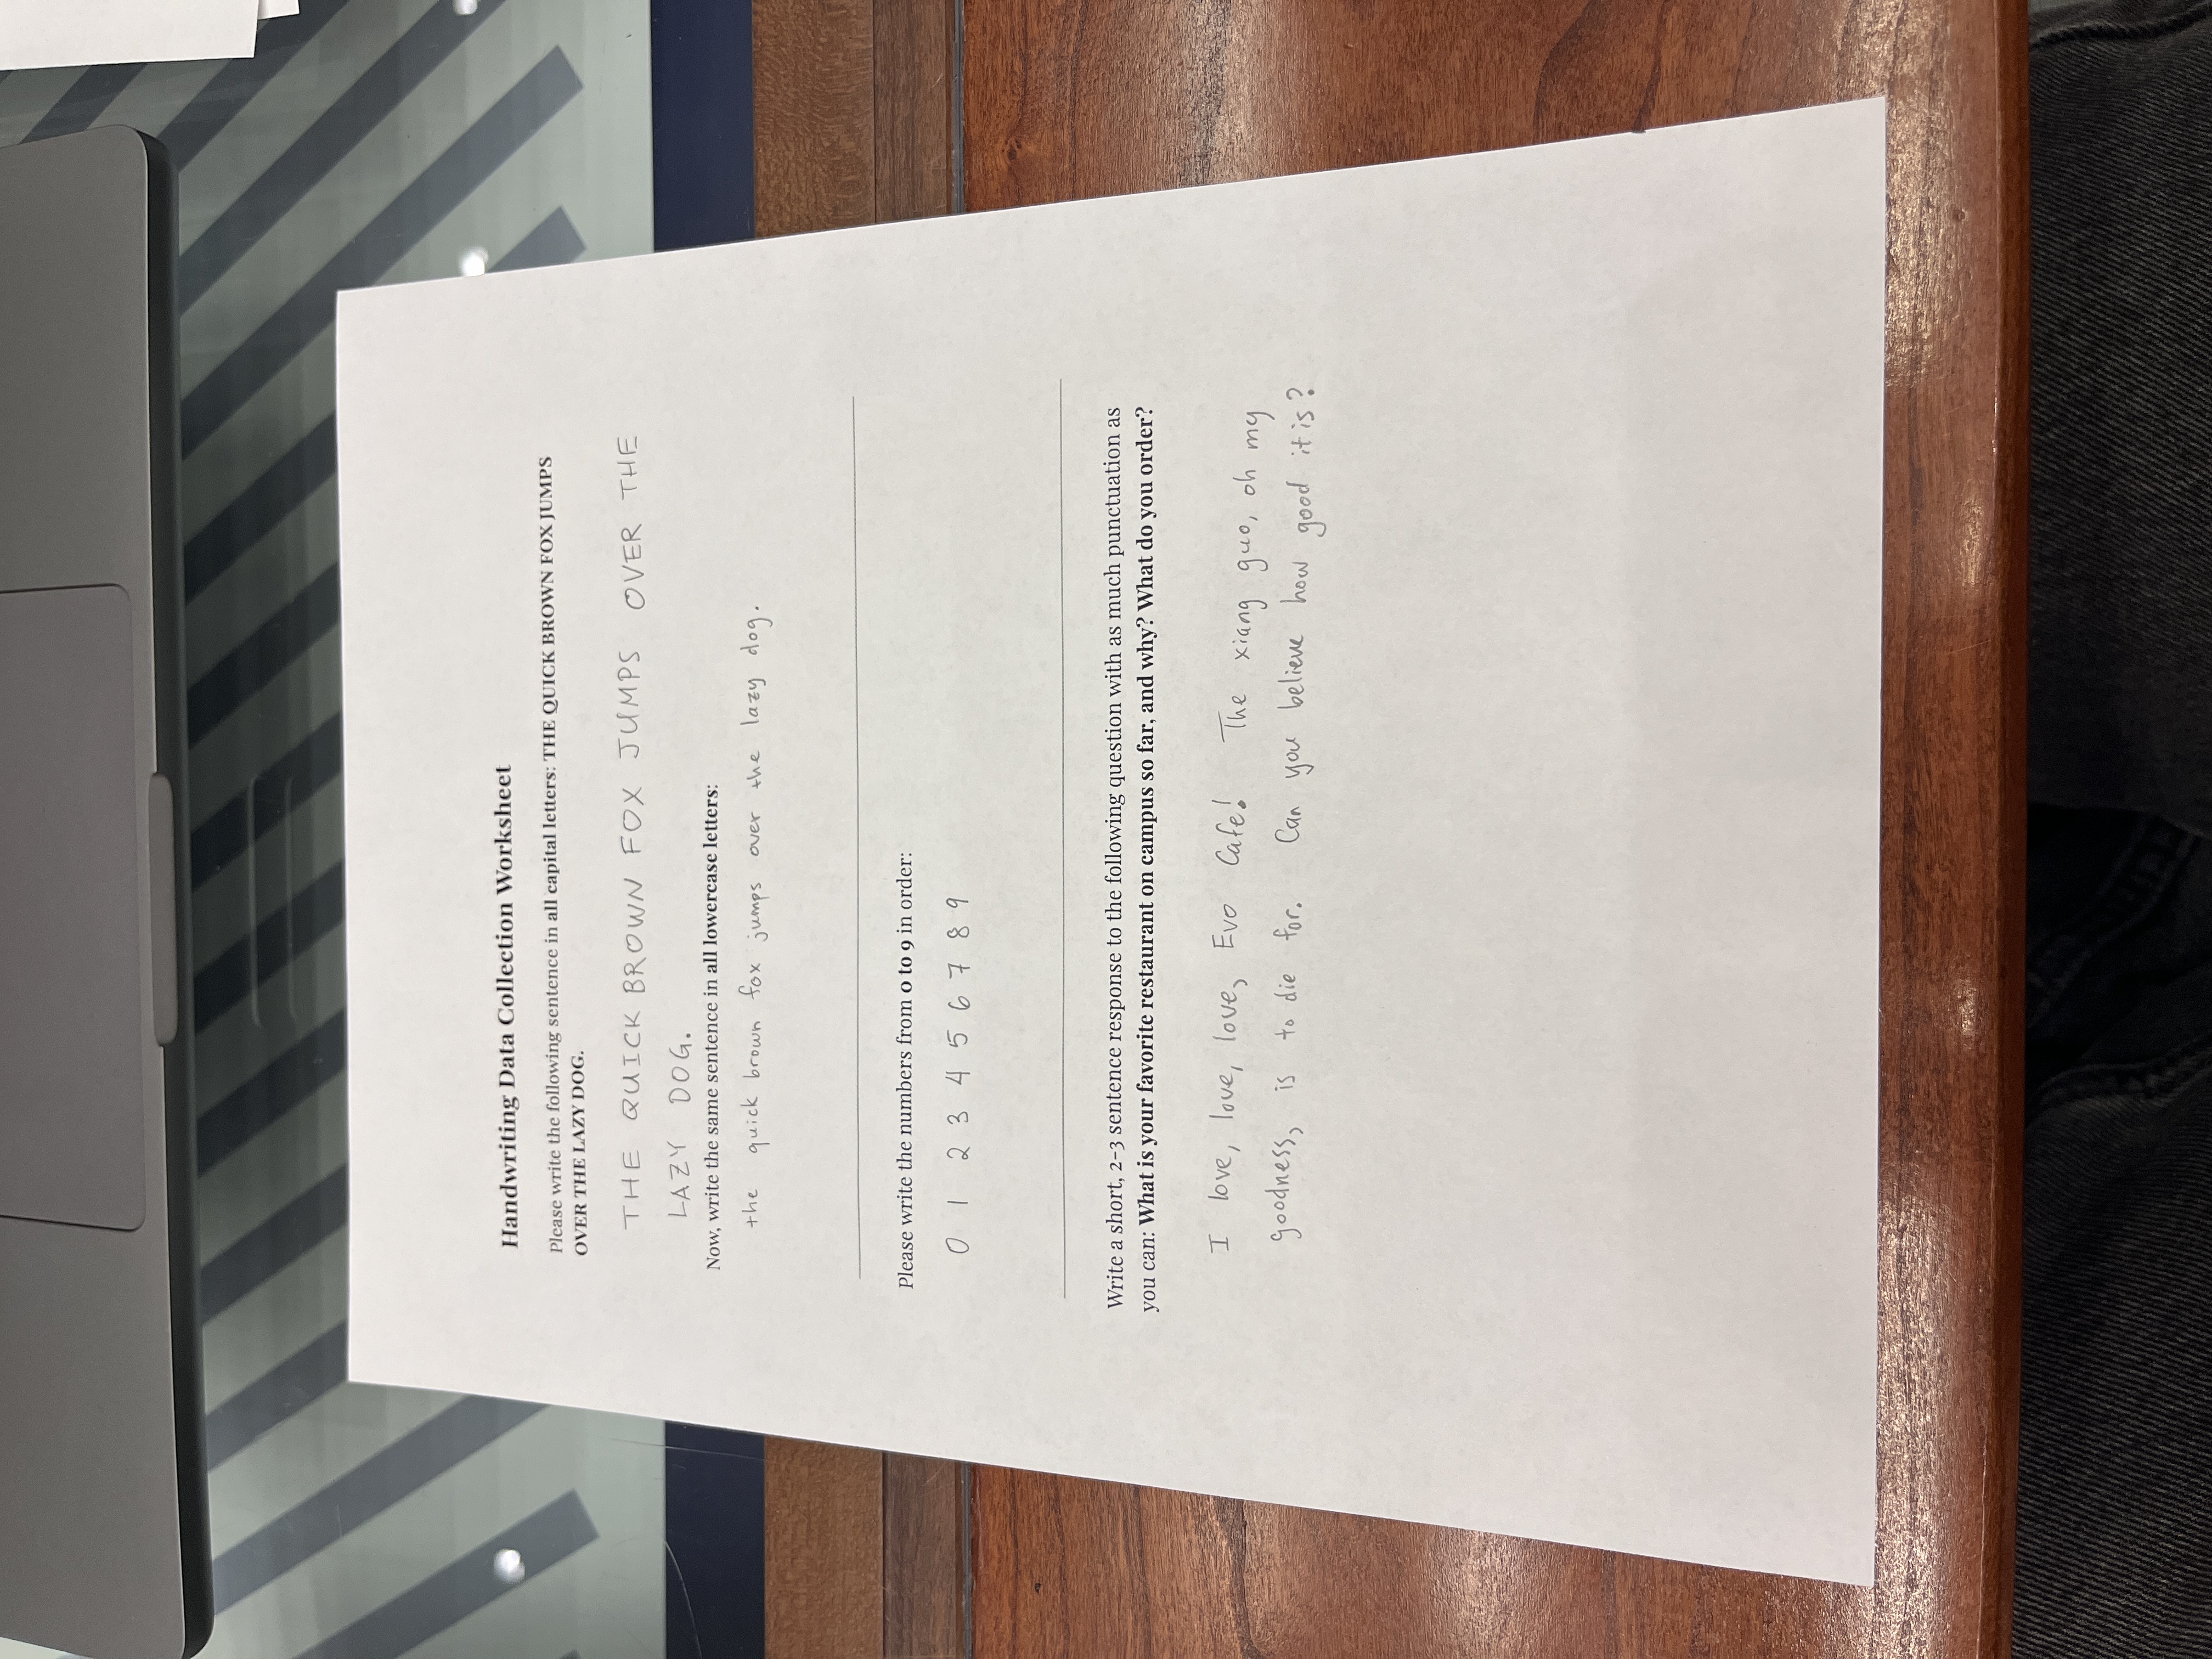 Handwriting Data Collection Worksheet
Please write the following sentence in all capital letters: THE QUICK BROWN FOX JUMPS
OVER THE LAZY DOG.
THE QUICK BROWN FOX JUMPS OVER THE
LAZY DOG.
Now, write the same sentence in all lowercase letters:
the quick brown fox jumps over the lazy dog.
Please write the numbers from 0 to 9 in order:
0 1 2 3 4 5 6 7 8 9
Write a short, 2-3 sentence response to the following question with as much punctuation as
you can: What is your favorite restaurant on campus so far, and why? What do you order?
I love, love, love, Evo Cafe! The xiang guo, oh my
goodness, is to die for. Can you believe how good it is?